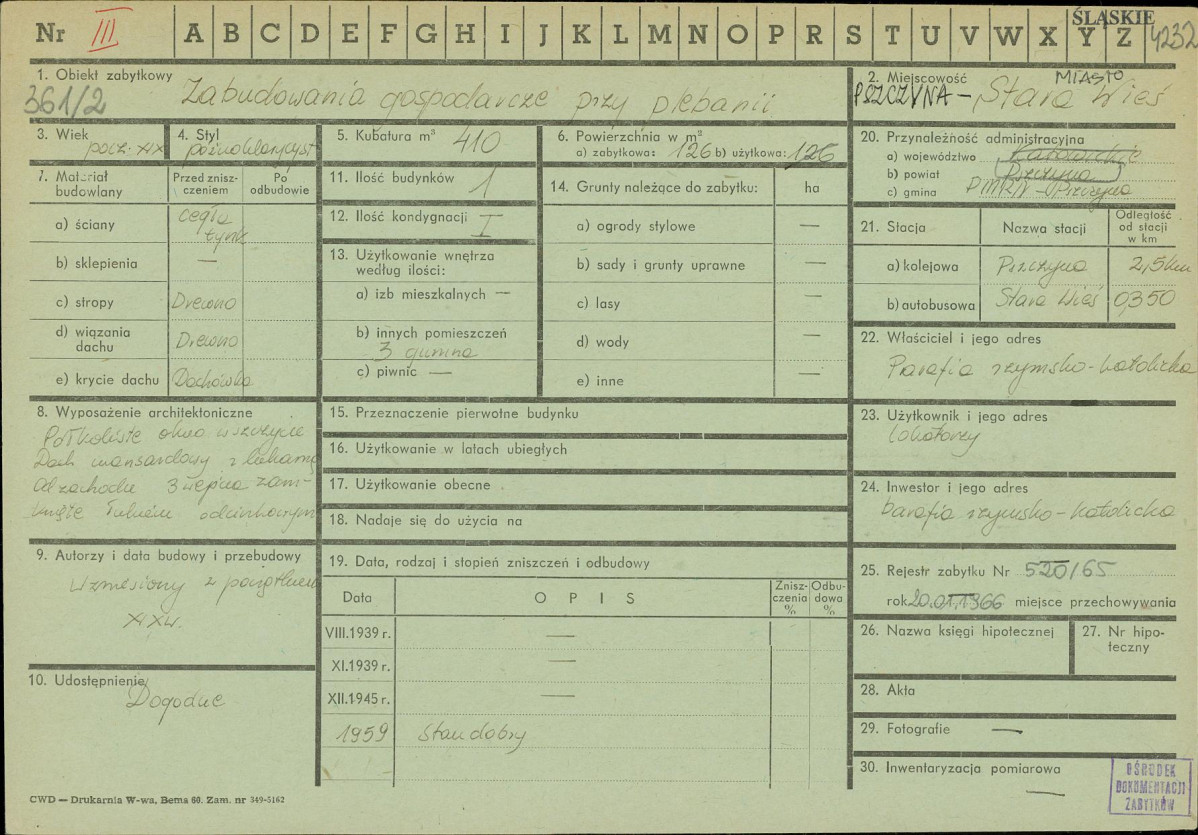 ŚLĄSKIE
Nr III A B C D E F G H I J K L M N O P R S T U V W X Y Z 4232
1. Obiekt zabytkowy
361/2 Zabudowania gospodarcze przy plebanii
2. Miejscowość MIASTO
PSZCZYNA - Stara Wieś
3. Wiek
pocz. XIX
4. Styl
późnoklasycyst
5. Kubatura m³ 410
6. Powierzchnia w m²
a) zabytkowa: 126 b) użytkowa: 126
7. Materiał budowlany
Przed zniszczeniem
Po odbudowie
a) ściany cegła
tynk
b) sklepienia —
c) stropy Drewno
d) wiązania dachu Drewno
e) krycie dachu Dachówka
8. Wyposażenie architektoniczne
Półkoliste okno w szczycie
Dach mansardowy z lukarną
Od zachodu 3 wejścia zam-
knięte łukiem odcinkowym
9. Autorzy i data budowy i przebudowy
Wzniesiony z początkiem
XIX w.
10. Udostępnienie
Dogodne
11. Ilość budynków 1
12. Ilość kondygnacji I
13. Użytkowanie wnętrza
według ilości:
a) izb mieszkalnych —
b) innych pomieszczeń
3 gumna
c) piwnic —
14. Grunty należące do zabytku: ha
a) ogrody stylowe —
b) sady i grunty uprawne —
c) lasy —
d) wody —
e) inne —
15. Przeznaczenie pierwotne budynku
16. Użytkowanie w latach ubiegłych
17. Użytkowanie obecne
18. Nadaje się do użycia na
19. Data, rodzaj i stopień zniszczeń i odbudowy
Data O P I S Zniszczenia % Odbudowa %
VIII.1939 r. —
XI.1939 r. —
XII.1945 r. —
1959 stan dobry
20. Przynależność administracyjna
a) województwo Katowickie
b) powiat Pszczyna
c) gmina PMRN - Pszczyna
21. Stacja Nazwa stacji Odległość od stacji w km
a) kolejowa Pszczyna 2,5 km
b) autobusowa Stara Wieś 0,350
22. Właściciel i jego adres
Parafia rzymsko-katolicka
23. Użytkownik i jego adres
lokatorzy
24. Inwestor i jego adres
parafia rzymsko-katolicka
25. Rejestr zabytku Nr 520/65
rok 20.01.1966 miejsce przechowywania
26. Nazwa księgi hipotecznej
27. Nr hipoteczny
28. Akta
29. Fotografie —
30. Inwentaryzacja pomiarowa
—
OŚRODEK
DOKUMENTACJI
ZABYTKÓW
CWD — Drukarnia W-wa, Bema 60. Zam. nr 349-5162